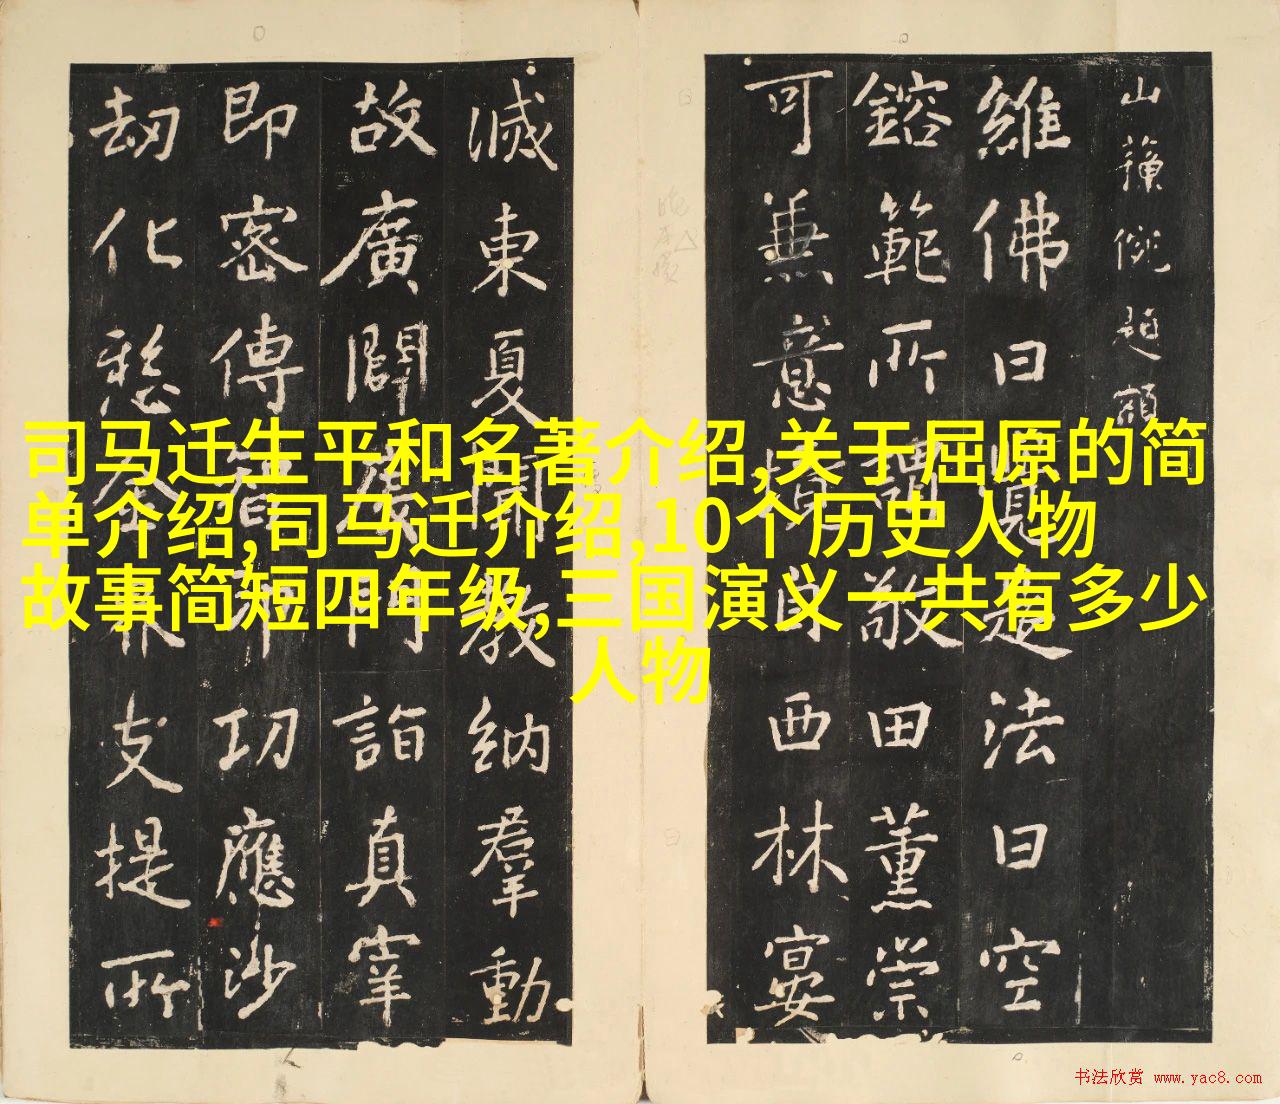 司马迁生平和名著介绍,关于屈原的简
单介绍,司马迁介绍,10个历史人物
故事简短四年级,三国演义一共有多少
人物
維佛曰
法曰空
鎔範所
敬田薰崇
可兼意
西林宴
滅東夏開教納羣動
故廣闢
詣真宰
即密傳
功應沙
劫化
支提所
书法欣赏 www.yac8.com